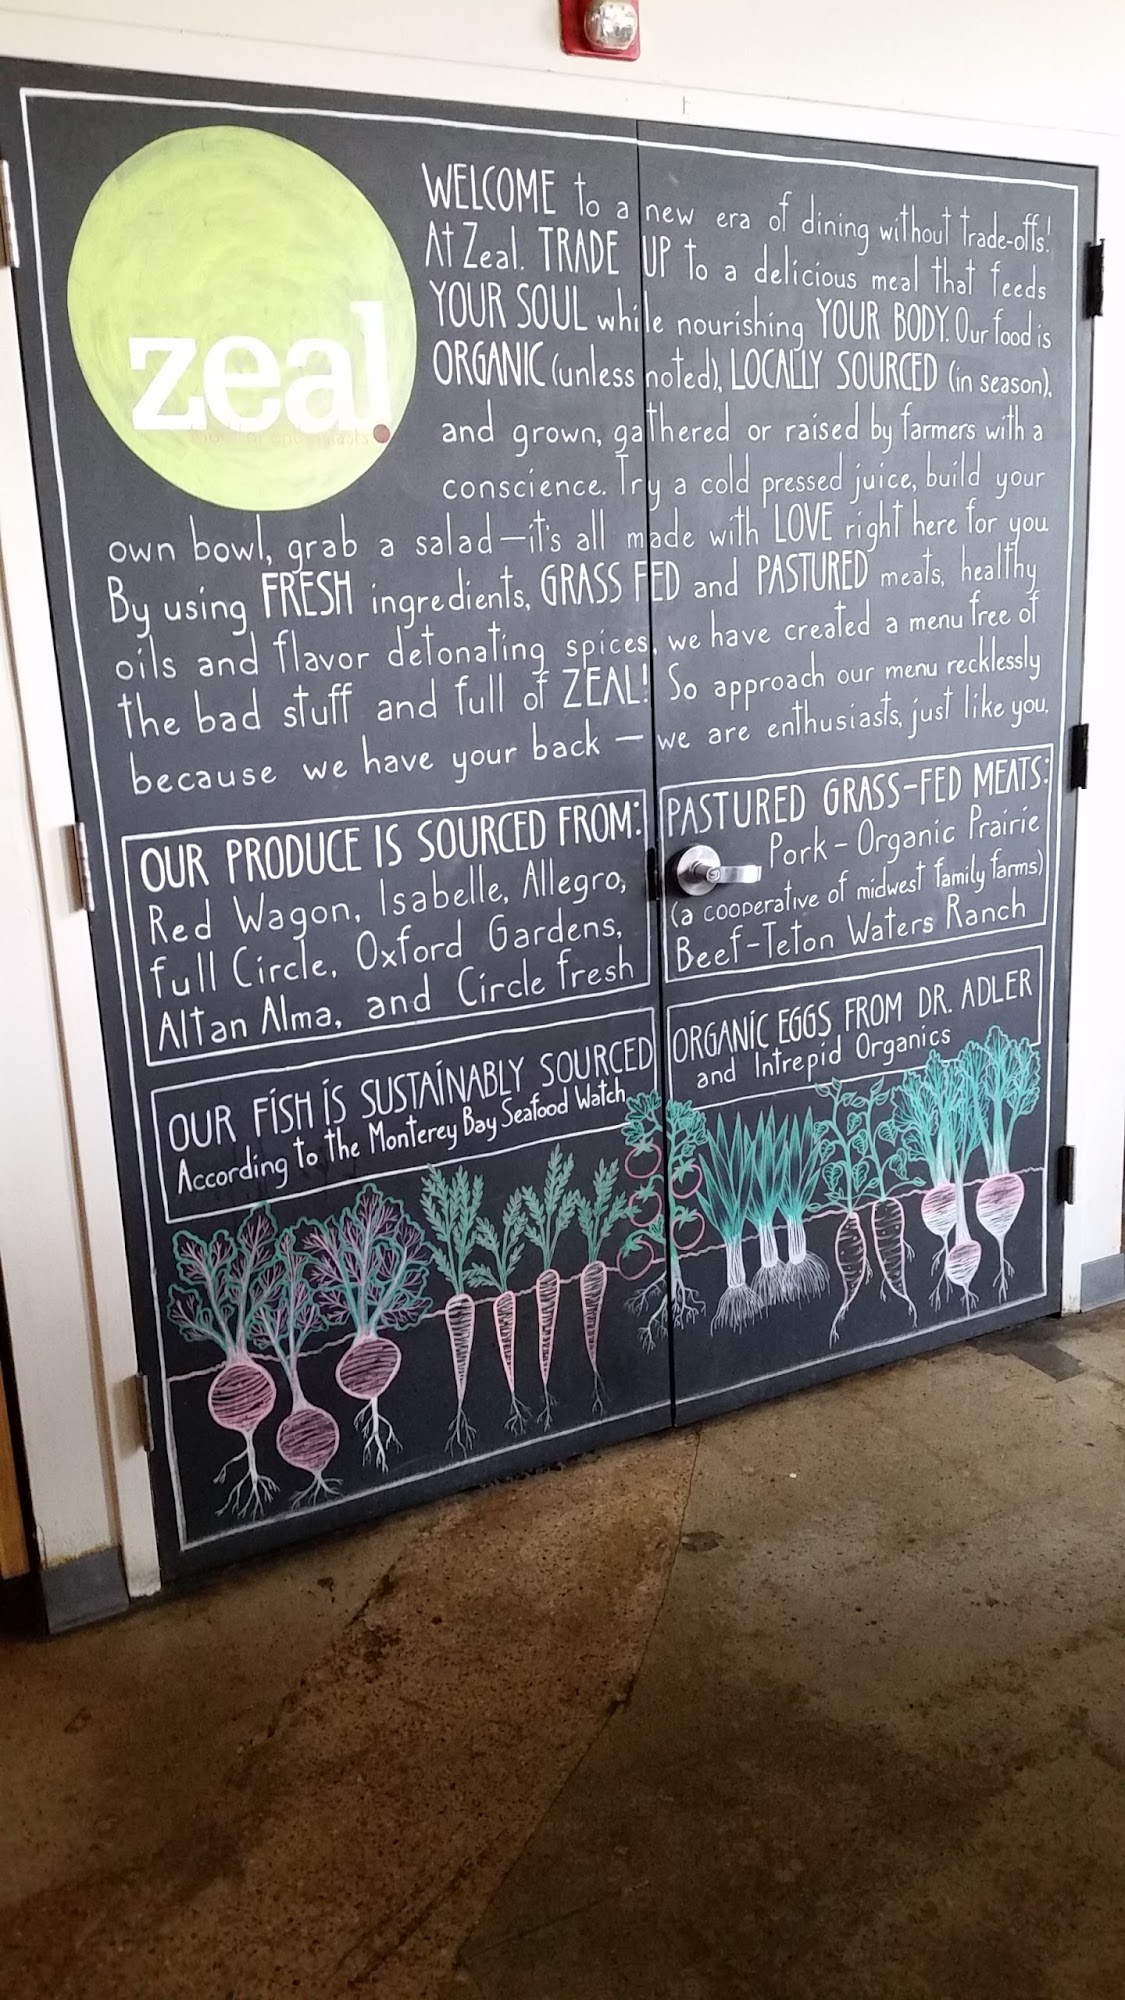 zeal.
food for enthusiasts
WELCOME to a new era of dining without trade-offs!
At Zeal. TRADE UP to a delicious meal that feeds
YOUR SOUL while nourishing YOUR BODY. Our food is
ORGANIC (unless noted), LOCALLY SOURCED (in season),
and grown, gathered or raised by farmers with a
conscience. Try a cold pressed juice, build your
own bowl, grab a salad—it's all made with LOVE right here for you
By using FRESH ingredients, GRASS FED and PASTURED meats, healthy
oils and flavor detonating spices, we have created a menu free of
the bad stuff and full of ZEAL! So approach our menu recklessly
because we have your back — we are enthusiasts, just like you.
OUR PRODUCE IS SOURCED FROM:
Red Wagon, Isabelle, Allegro,
full Circle, Oxford Gardens,
Altan Alma, and Circle fresh
PASTURED GRASS-FED MEATS:
Pork - Organic Prairie
(a cooperative of midwest family farms)
Beef-Teton Waters Ranch
OUR FISH IS SUSTAINABLY SOURCED
According to the Monterey Bay Seafood Watch
ORGANIC EGGS FROM DR. ADLER
and Intrepid Organics